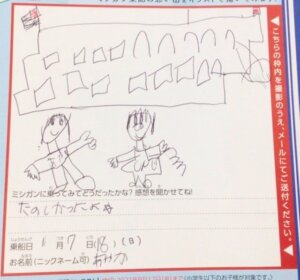 こちらの枠内を撮影のうえ、メールにてご送付ください。
ミシガンに乗ってみてどうだったかな？感想を聞かせてね!
たのしかったよ
乗船日 月 17 日 (日)
お名前(ニックネーム可)